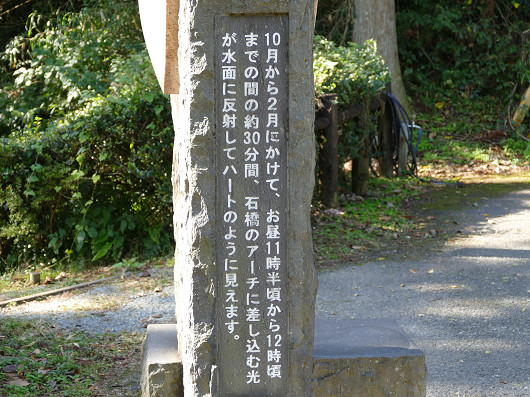 10月から2月にかけて、お昼11時半頃から12時頃
までの間の約30分間、石橋のアーチに差し込む光
が水面に反射してハートのように見えます。